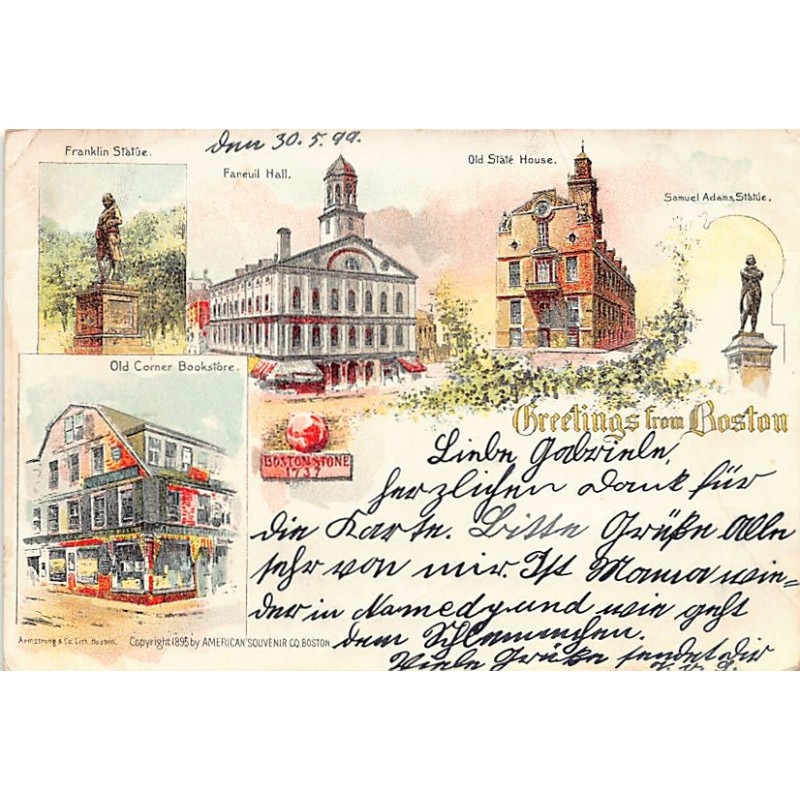 den 30.5.99.
Franklin Statue.
Faneuil Hall.
Old State House.
Samuel Adams, Statue.
Old Corner Bookstore.
Greetings from Boston
BOSTON STONE
1737
Liebe Gabriele,
herzlichen Dank für
die Karte. Bitte Grüße Alle
sehr von mir. Ist Mama wie=
der in Namedy und wie geht
dem
Viele Grüße sendet dir
Armstrong & Co. Lith. Boston.
Copyright 1895 by AMERICAN SOUVENIR CO. BOSTON.